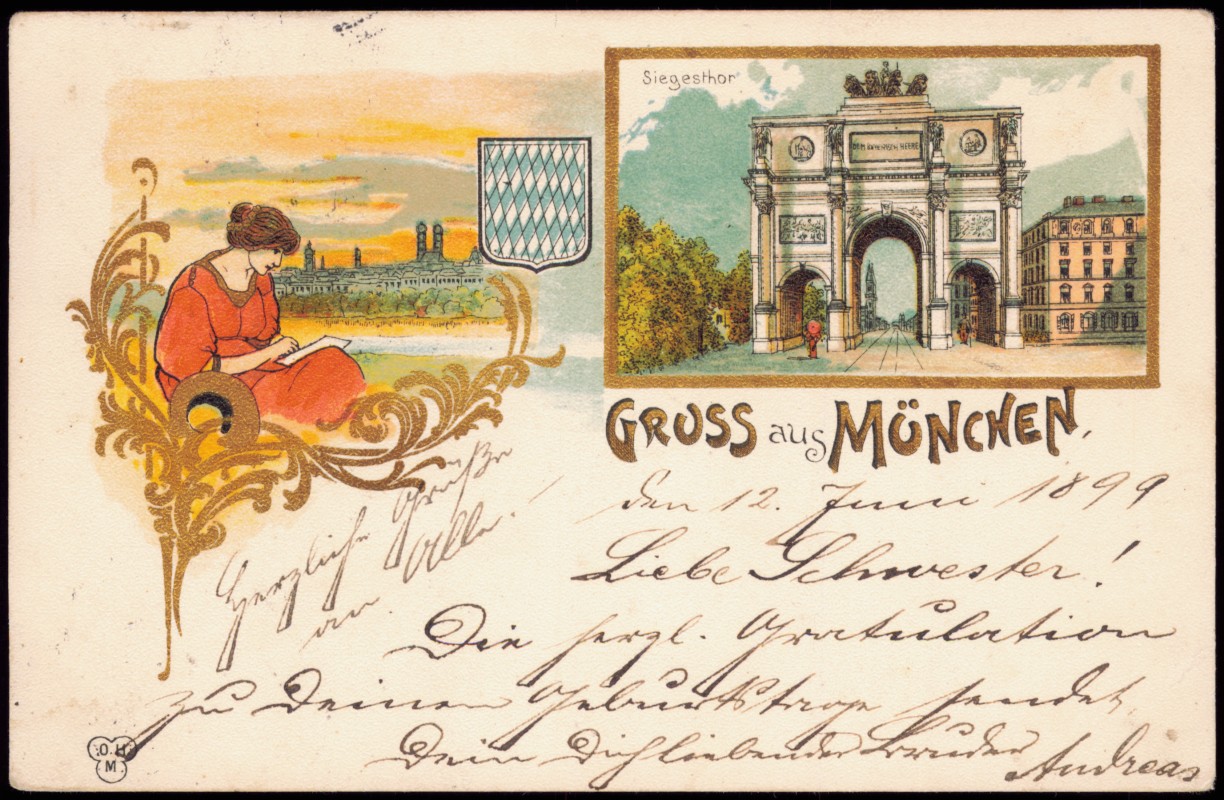 Siegesthor
DEM BAYERISCHEN HEERE
GRUSS aus MÜNCHEN,
den 12. Juni 1899
Liebe Schwester!
Die herzl. Gratulation
zu Deinem Geburtstage sendet
Dein Dich liebender Bruder
Andreas
Herzliche Grüße
an Alle!
O. H.
M.